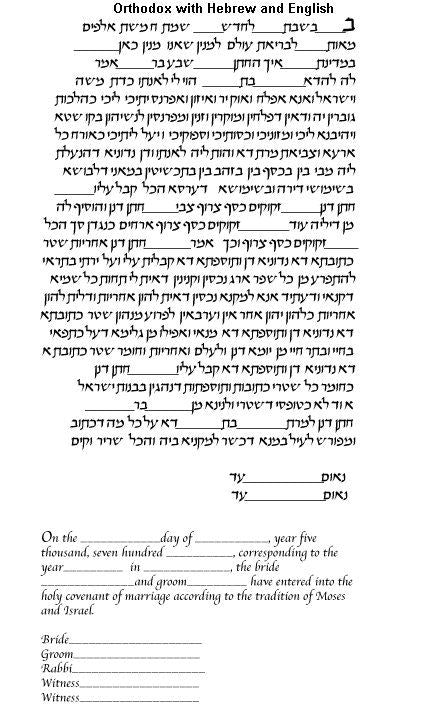 Orthodox with Hebrew and English
ב_____בשבת_____לחדש_____שנת חמשת אלפים
מאות_____לבריאת עולם למנין שאנו מנין כאן_____
במדינת_____איך החתן_____שבע בר_____אמר
לה להדא_____בת_____הוי לי לאנתו כדת משה
וישראל ואנא אפלח ואוקיר ואיזון ואפרנס יתיכי ליכי כהלכות
גוברין יהודאין דפלחין ומוקרין וזנין ומפרנסין לנשיהון בקושטא
ויהיבנא ליכי ומזוניכי וכסותיכי וסיפוקיכי ויעל ליתיכי כאורח כל
ארעא וצביאת מרת דא והות ליה לאנתו ודן נדוניא דהנעלת
ליה מבי בין בכסף בין בזהב בין בתכשיטין במאני דלבושא
בשימושי דירה ובשימושא דערסא הכל קבל עליו_____
חתן דנן_____זקוקים כסף צרוף צבי_____חתן דנן והוסיף לה
מן דיליה עוד_____זקוקים כסף צרוף אחרים כנגדן סך הכל
_____זקוקים כסף צרוף וכך אמר_____חתן דנן אחריות שטר
כתובתא דא נדוניא דן ותוספתא דא קבלית עלי ועל ירתי בתראי
להתפרע מן כל שפר ארג נכסין וקנינין דאית לי תחות כל שמיא
דקנאי ודעתיד אנא למקנא נכסין דאית להון אחריות ודלית להון
אחריות כלהון יהון אחראין וערבאין לפרוע מנהון שטר כתובתא
דא נדוניא דן ותוספתא דא מנאי ואפילו מן גלימא דעל כתפאי
בחיי ובתר חיי מן יומא דנן ולעלם ואחריות וחומר שטר כתובתא
דא נדוניא דן ותוספתא דא קבל עליו_____חתן דנן
כחומר כל שטרי כתובות ותוספתות דנהגין בבנות ישראל
_____בר_____ולנינא מן
חתן דנן למרת_____בת_____דא על כל מה דכתוב
ומפורש לעיל במנא דכשר למקניא ביה והכל שריר וקים
נאום_____עד
נאום_____עד
On the _____________day of ____________, year five
thousand, seven hundred ___________, corresponding to the
year__________ in ______________, the bride
_______________and groom__________ have entered into the
holy covenant of marriage according to the tradition of Moses
and Israel.
Bride______________________
Groom_____________________
Rabbi______________________
Witness____________________
Witness____________________